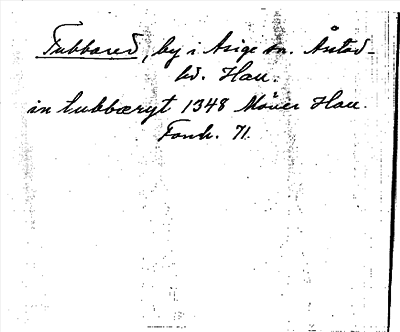 Tubbared, by i Asige sn. Årstad-
hd. Hall.
in tubbæryt 1348 Möller Hall.
Fornh. 71.